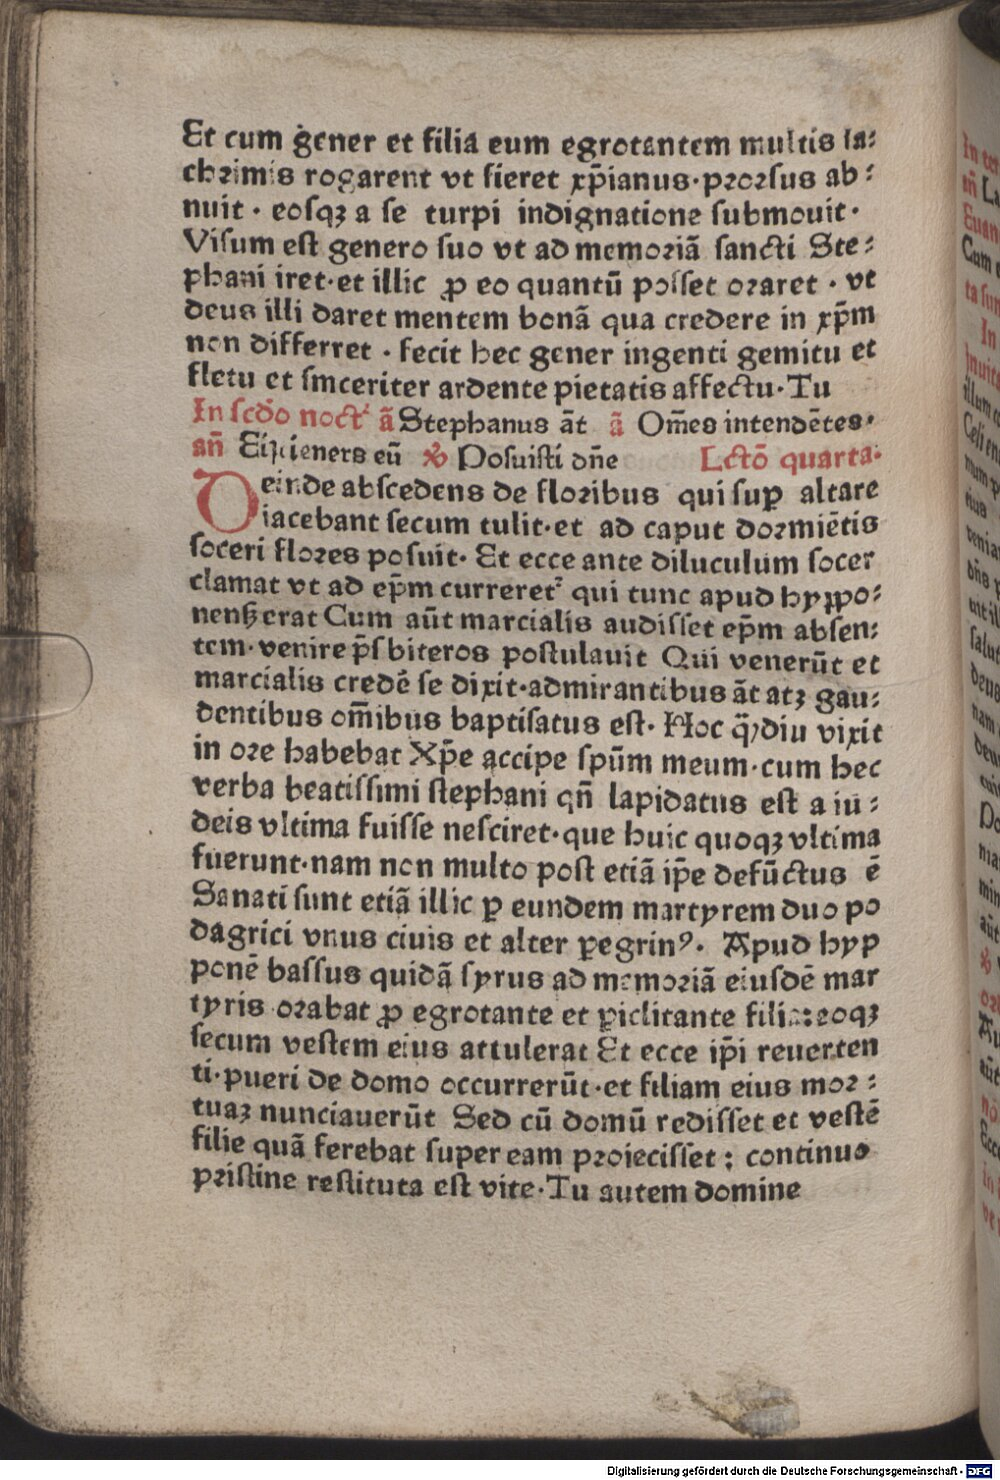 Et cum gener et filia eum egrotantem multis la:
chrimis rogarent vt fieret xp̄ianus·prorsus ab:
nuit· eosqꝫ a se turpi indignatione submouit·
Visum est genero suo vt ad memoriā sancti Ste:
phani iret·et illic ꝓ eo quantū posset oraret· vt
deus illi daret mentem bonā qua credere in xp̄m
non differret· fecit hec gener ingenti gemitu et
fletu et sinceriter ardente pietatis affectu·Tu
In scd̄o noct' ā Stephanus āt ā Om̄es intendētes·
an̄ Eijcieners eū ℣ Posuisti dn̄e Lctō quarta·
Deinde abscedens de floribus qui suꝑ altare
iacebant secum tulit·et ad caput dormiētis
soceri flores posuit· Et ecce ante diluculum socer
clamat vt ad ep̄m curreret᷑ qui tunc apud hyppo:
nenẜ erat Cum aūt marcialis audisset ep̄m absen:
tem·venire p̄sbiteros postulauit Qui venerūt et
marcialis credē se dixit·admirantibus āt atꝫ gau:
dentibus om̄ibus baptisatus est· Hoc q̄ꝫdiu vixit
in ore habebat Xp̄e accipe spūm meum·cum hec
verba beatissimi stephani qn̄ lapidatus est a iu:
deis vltima fuisse nesciret·que huic quoqꝫ vltima
fuerunt·nam non multo post etiā ip̄e defūctus ē
Sanati sunt etiā illic ꝑ eundem martyrem duo po
dagrici vnus ciuis et alter ꝑegrinꝰ. Apud hyp
ponē bassus quidā syrus ad memoriā eiusdē mar
tyris orabat ꝓ egrotante et ꝑiclitante filia:eoqꝫ
secum vestem eius attulerat Et ecce ip̄i reuerten
ti·pueri de domo occurrerūt·et filiam eius mor:
tuaꝫ nunciauerūt Sed cū domū redisset et vestē
filie quā ferebat super eam proiecisset: continuo
pristine restituta est vite·Tu autem domine
Digitalisierung gefördert durch die Deutsche Forschungsgemeinschaft - DFG